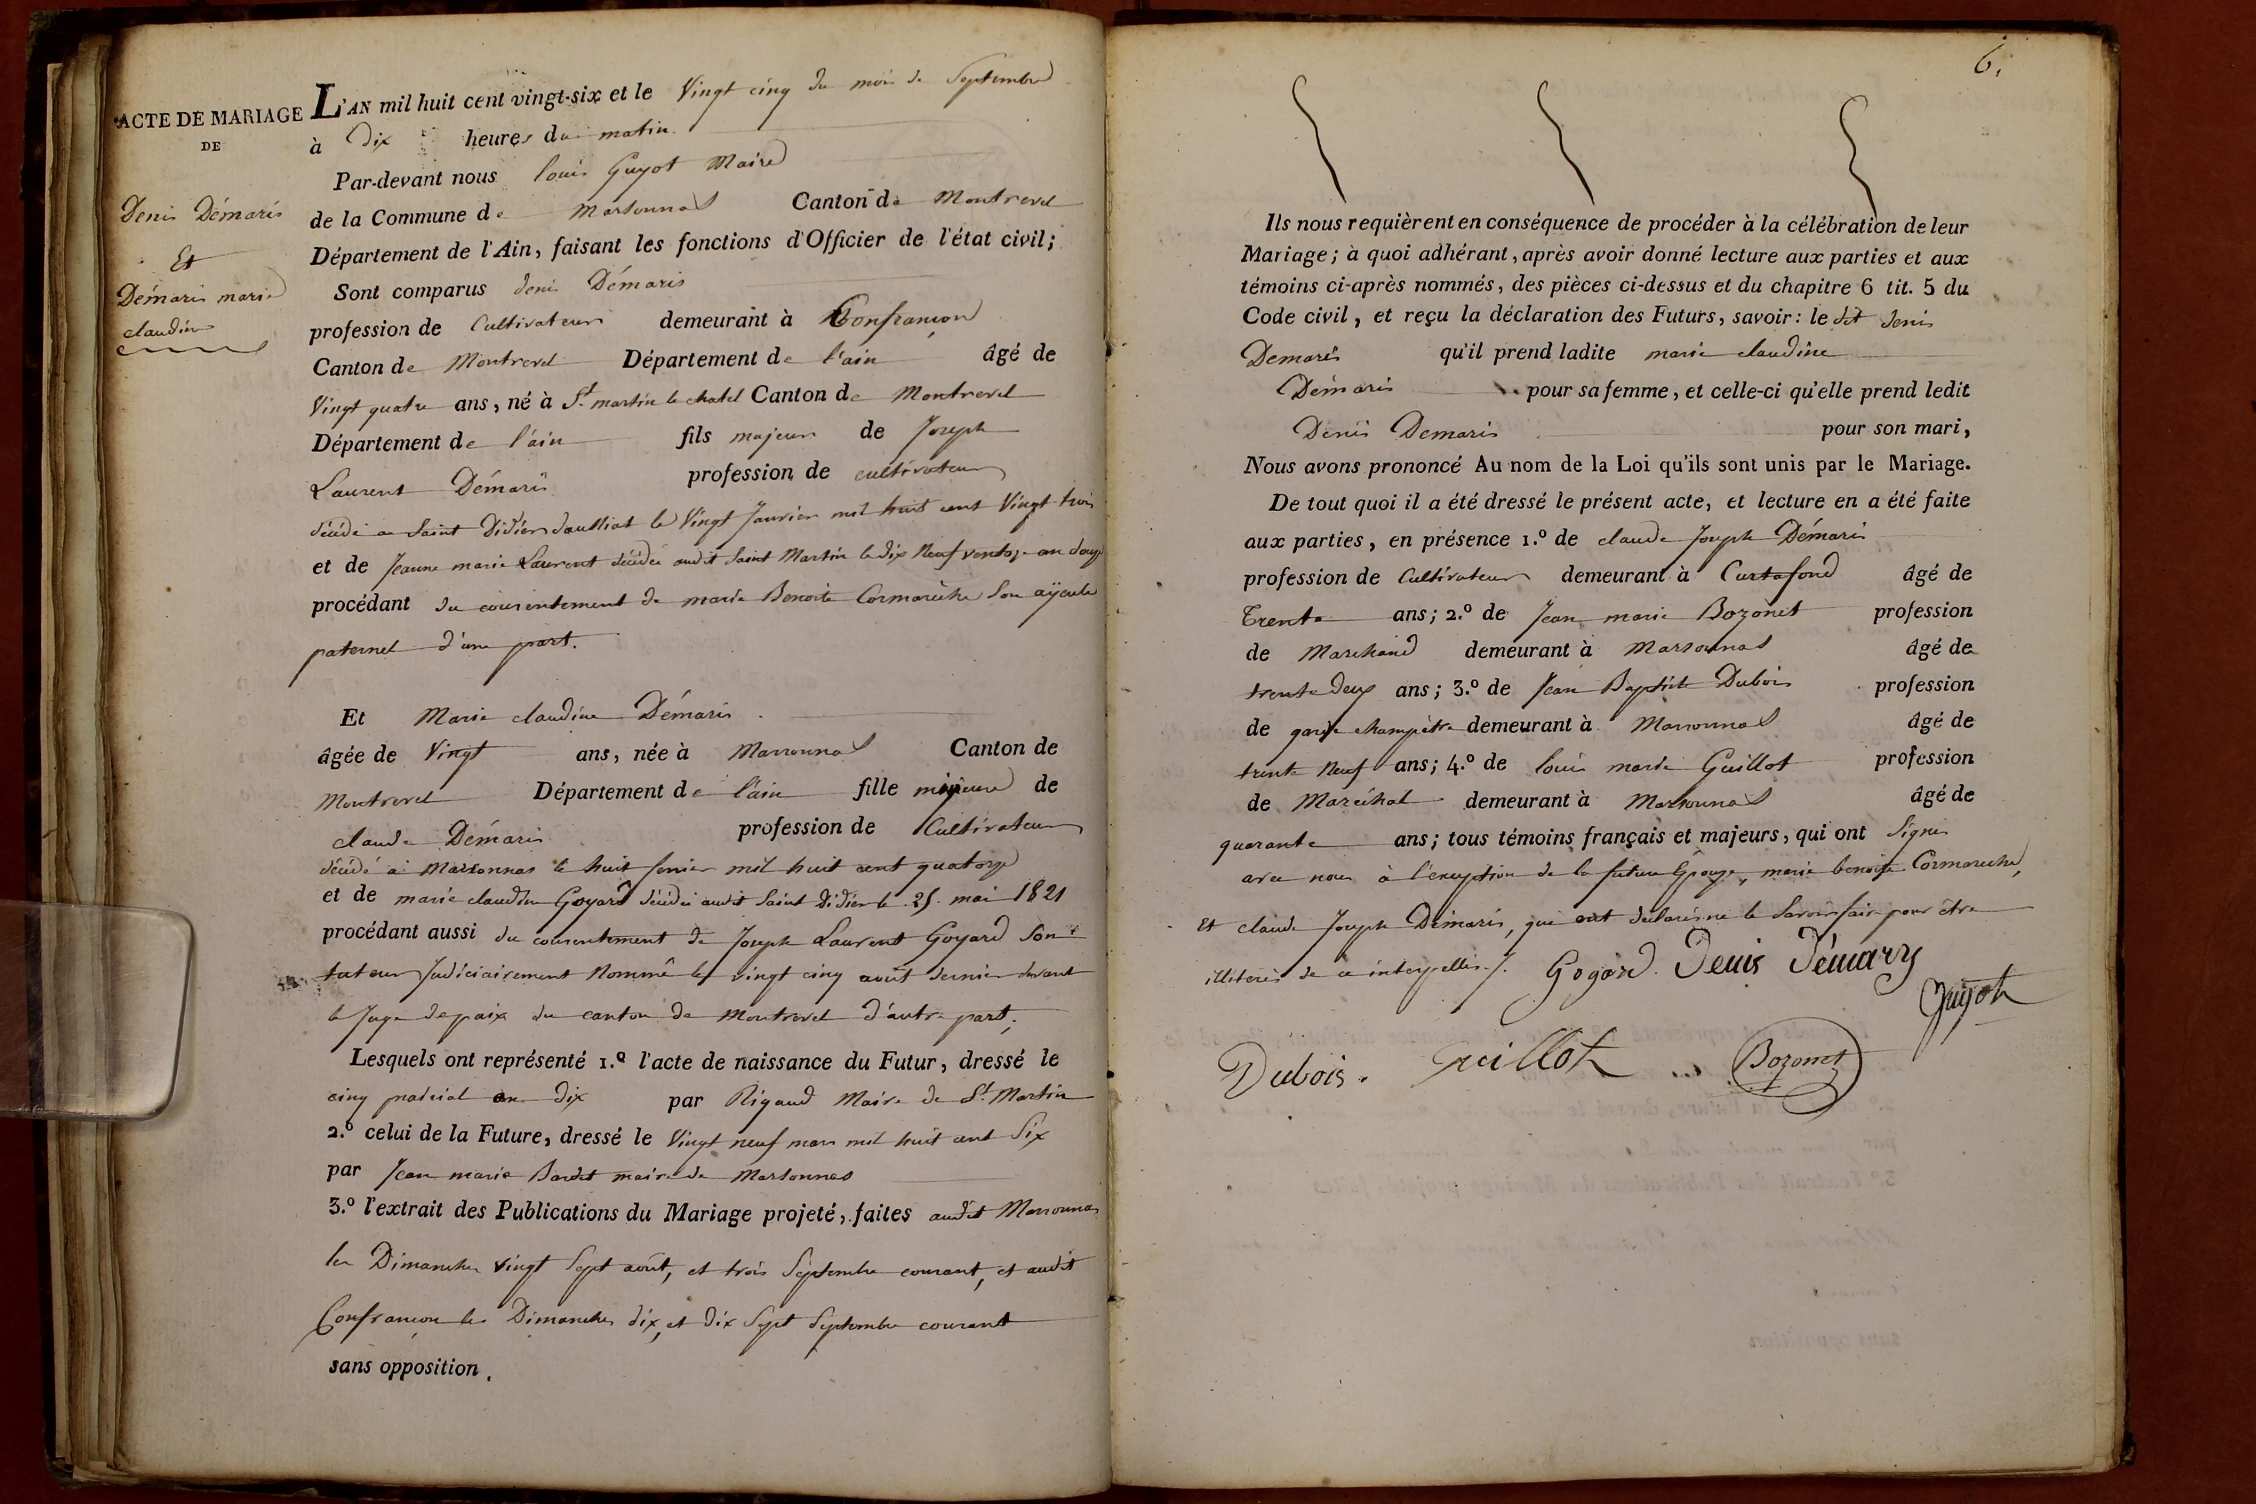 ACTE DE MARIAGE
DE
Denis Démaris
Et
Démaris marie
claudine
L'AN mil huit cent vingt-six et le Vingt cinq du mois de Septembre
à Dix heures du matin.
Par-devant nous louis Guyot Maire
de la Commune de Marsonnas Canton de Montrevel
Département de l'Ain, faisant les fonctions d'Officier de l'état civil;
Sont comparus denis Démaris
profession de Cultivateur demeurant à Confrançon
Canton de Montrevel Département de l'ain âgé de
Vingt quatre ans, né à St. martin le chatel Canton de Montrevel
Département de l'ain fils majeur de Joseph
Laurent Démaris profession de cultivateur
décédé a Saint Didier daussiat le Vingt Janvier mil huit cent Vingt trois
et de Jeanne marie Laurent décédée audit Saint Martin le dix Neuf ventose an douze
procédant du consentement de marie Benoite Cormareche Son ayeule
paternel d'une part.
Et Marie claudine Démaris
âgée de Vingt ans, née à Marsonnas Canton de
Montrevel Département de l'ain fille mineure de
claude Démaris profession de Cultivateur
décédé à Marsonnas le huit fevrier mil huit cent quatorze
et de marie claudine Goyard décédée audit Saint Didier le 25 mai 1821
procédant aussi du consentement de Joseph Laurent Goyard son
tuteur Judiciairement Nommé le vingt cinq août dernier devant
le Juge de paix du canton de Montrevel d'autre part;
Lesquels ont représenté 1.º l'acte de naissance du Futur, dressé le
cinq prairial an dix par Rigaud Maire de St. Martin
2.º celui de la Future, dressé le Vingt neuf mars mil huit cent Six
par Jean marie Bardet maire de Marsonnas
3.º l'extrait des Publications du Mariage projeté, faites audit Marsonnas
les Dimanches vingt Sept août, et trois Septembre courant, et audit
Confrançon les Dimanches dix, et dix Sept Septembre courant
sans opposition.
6.
Ils nous requièrent en conséquence de procéder à la célébration de leur
Mariage; à quoi adhérant, après avoir donné lecture aux parties et aux
témoins ci-après nommés, des pièces ci-dessus et du chapitre 6 tit. 5 du
Code civil, et reçu la déclaration des Futurs, savoir: le dit denis
Demaris qu'il prend ladite marie claudine
Démaris pour sa femme, et celle-ci qu'elle prend ledit
Denis Demaris pour son mari,
Nous avons prononcé Au nom de la Loi qu'ils sont unis par le Mariage.
De tout quoi il a été dressé le présent acte, et lecture en a été faite
aux parties, en présence 1.º de claude Joseph Démaris
profession de Cultivateur demeurant à Curtafond âgé de
Trente ans; 2.º de Jean marie Bozonet profession
de Marchand demeurant à Marsonnas âgé de
trente deux ans; 3.º de Jean Baptiste Dubois profession
de garde champêtre demeurant à Marsonnas âgé de
trente Neuf ans; 4.º de louis marie Guillot profession
de Maréchal demeurant à Marsonnas âgé de
quarante ans; tous témoins français et majeurs, qui ont Signé
avec nous à l'exception de la future Epouse, marie benoite Cormareche,
Et claude Joseph Démaris, qui ont declaré ne le Savoir fair pour être
illiterés de ce interpellés.
Goyard. Denis Démary
Guyot
Dubois. Guillot Bozonet